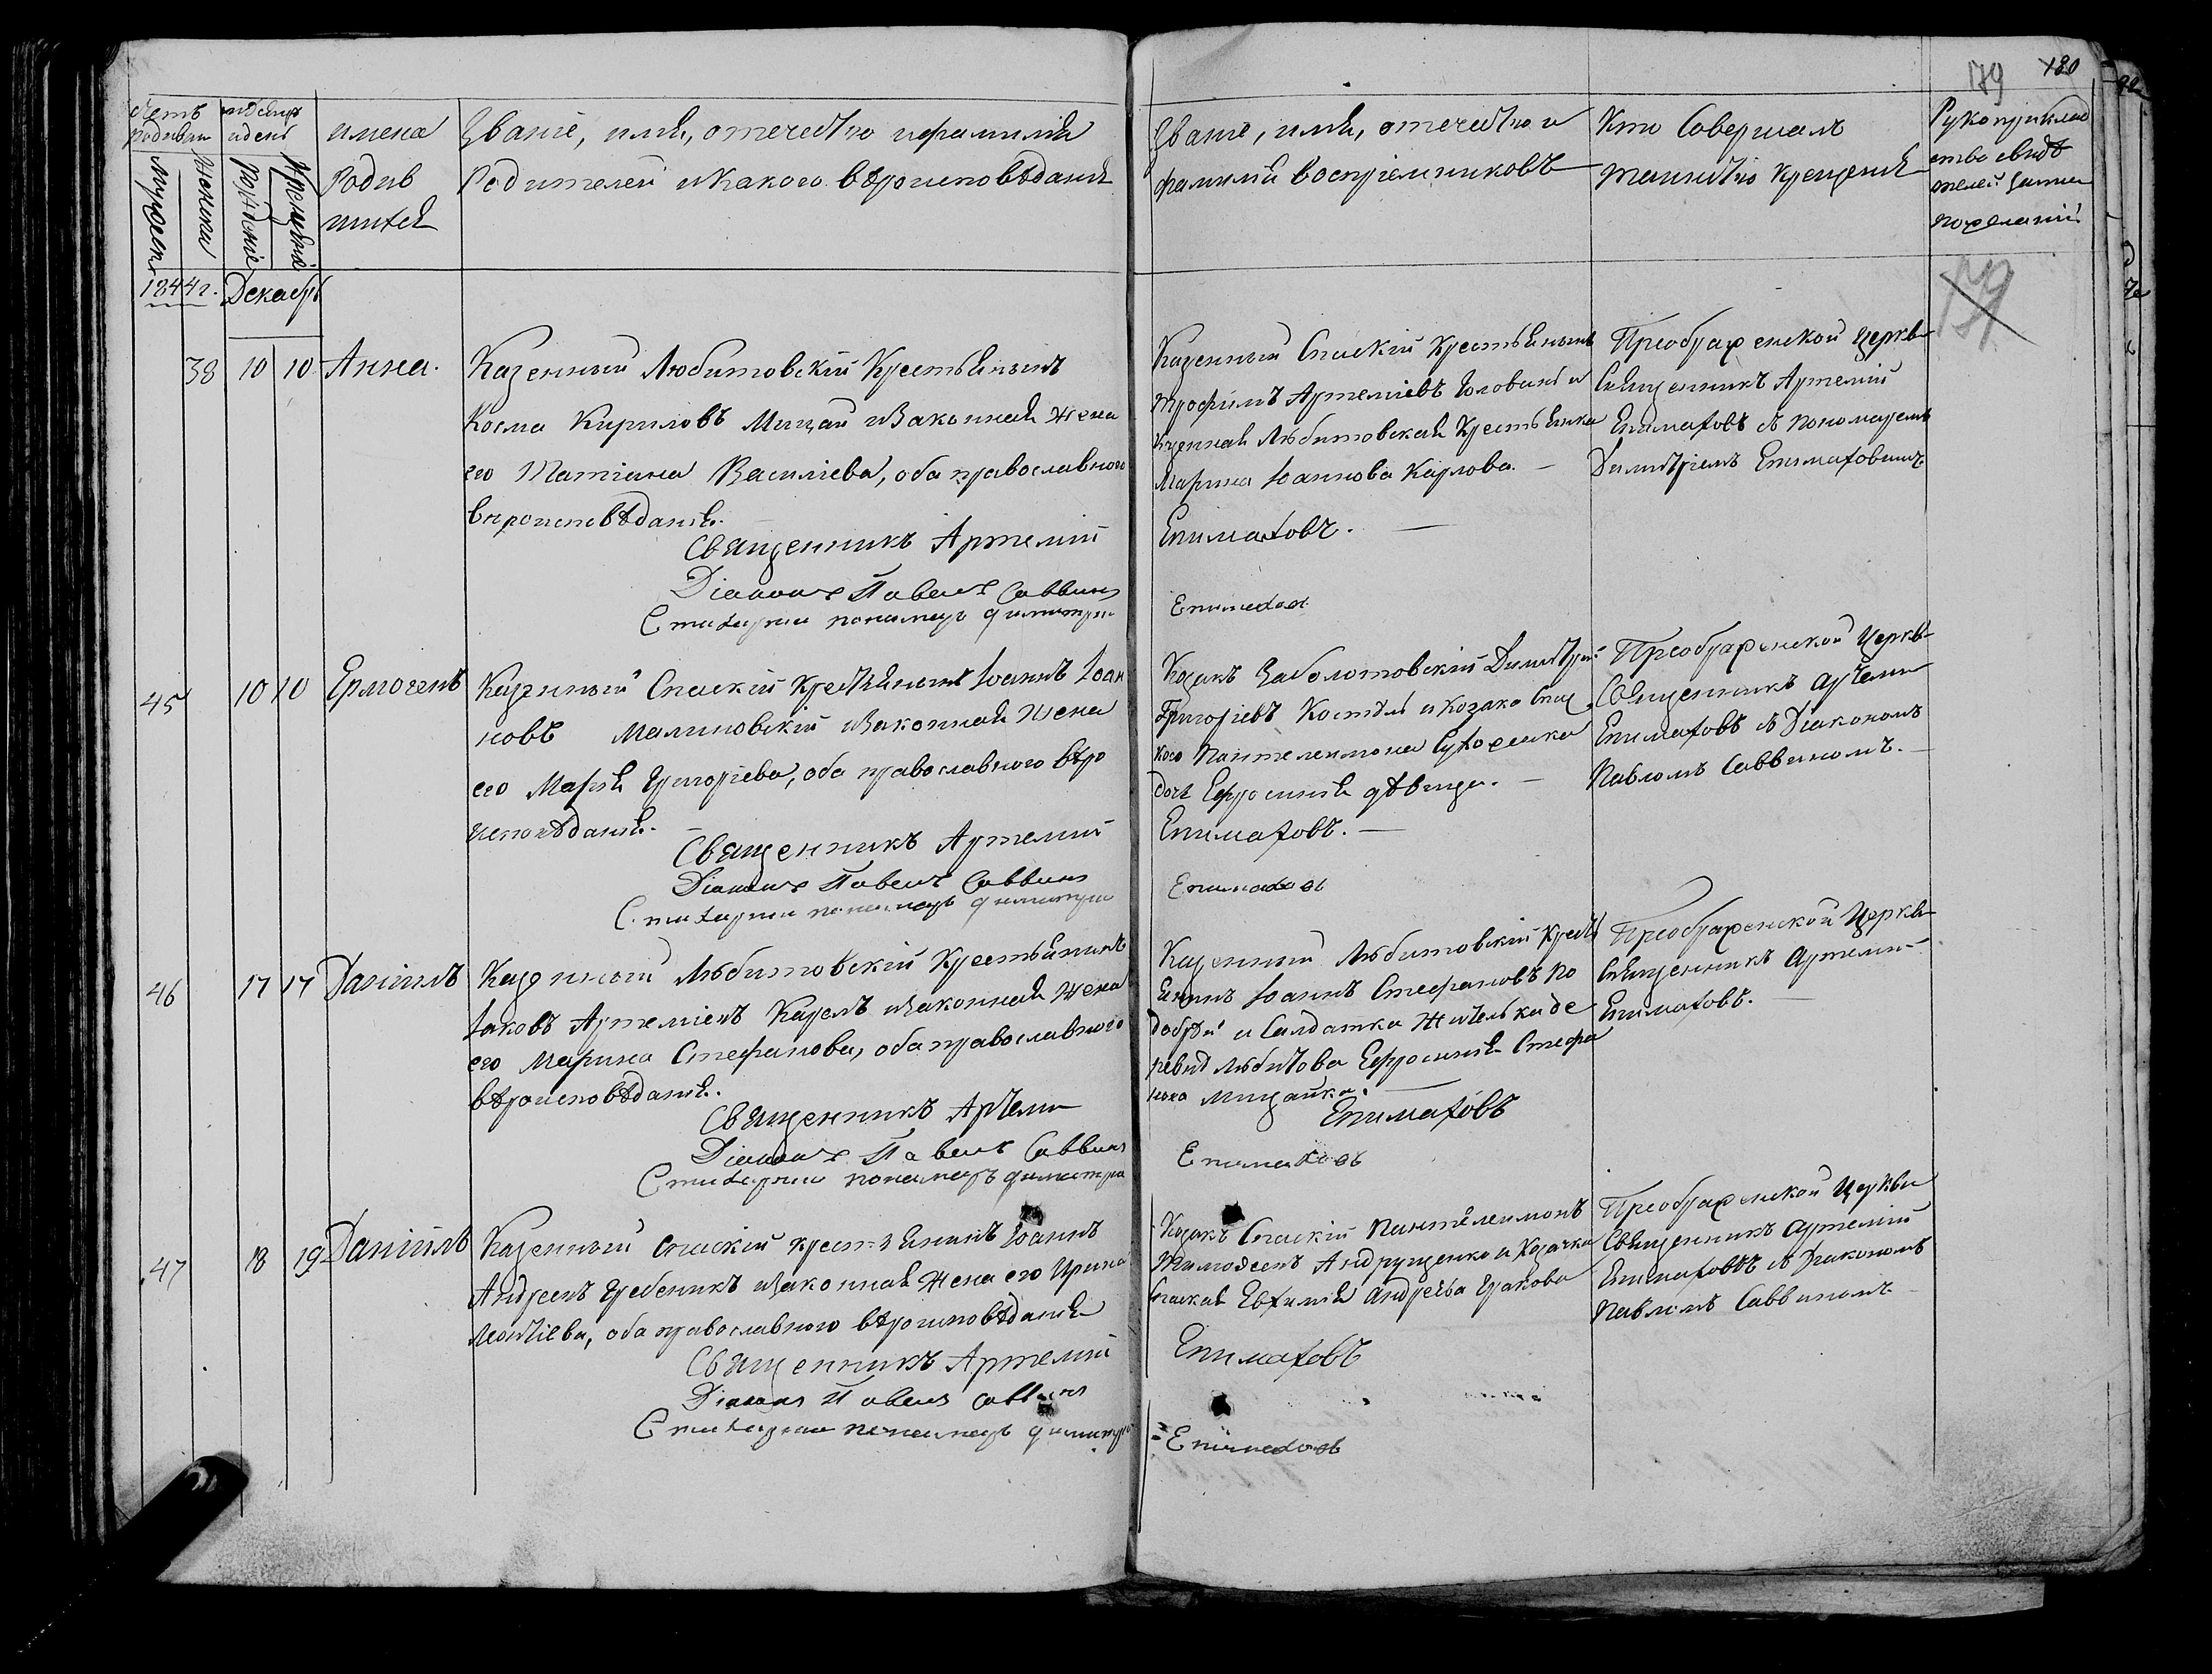 179 180
Счетъ родившихся
мѣсяцъ и день
имена родившихся
Званіе, имя, отечество и фамилія
Родителей и какого вѣроисповѣданія
Званіе, имя, отечество и
фамилія воспріемниковъ
Кто Совершалъ
таинство крещенія
Рукоприклад
ство свидѣ
телей записи
по желанію
Мужеска
Женска
Рожденіе
Крещенія
1844г. Декабрь
38 10 10 Анна.
Казенный Любитовскій Крестьянинъ
Косма Кириловъ Мицай и Законная Жена
его Татіана Василіева, оба православного
вѣроисповѣданія.
Священникъ Артемій
Діаконъ Павелъ Саввинъ
Стихарный пономарь Димитрій
Казенный Спаскій Крестьянинъ
Трофимъ Артеміевъ Головань и
Казенная Любитовская Крестьянка
Марина Іоаннова Карлова.
Епимаховъ.
Епимаховъ
Преображенской Церкви
Священникъ Артемій
Епимаховъ съ пономаремъ
Димитріемъ Епимаховымъ
45 10 10 Ермогенъ
Казенный Спаскій Крестьянинъ Іоаннъ Іоан
новъ Малиновскій и Законная Жена
его Марія Григоріева, оба православного вѣро
исповѣданія.
Священникъ Артемій
Діаконъ Павелъ Саввинъ
Стихарный пономарь Димитрій
Козакъ Заболотовскій Димитрій
Григоріевъ и Козака Спас
кого Пантелеимона
дочь Ефросинія дѣвица.
Епимаховъ.
Епимаховъ
Преображенской Церкви
Священникъ Артемій
Епимаховъ съ Діакономъ
Павломъ Саввиномъ.
46 17 17 Даніилъ
Казенный Любитовскій Крестьянинъ
Іаковъ Артеміевъ Карелъ и Законная Жена
его Марина Стефанова, оба православного
вѣроисповѣданія.
Священникъ Артемій
Діаконъ Павелъ Саввинъ
Стихарный пономарь Димитрій
Казенный Любитовскій Кресть
янинъ Іоаннъ Стефановъ По
добрій и Салдатка Жителька де
ревни Любитова Ефросинія Стефа
нова Мицайка.
Епимаховъ
Епимаховъ
Преображенской Церкви
Священникъ Артемій
Епимаховъ.
47 18 19 Даніилъ
Казенный Спаскій крестьянинъ Іоаннъ
Андреевъ Гребеникъ и Законная Жена его Ирина
Леонтіева, оба православного вѣроисповѣданія
Священникъ Артемій
Діаконъ Павелъ Саввинъ
Стихарный пономарь Димитрій
Козакъ Спаскій Пантелеимонъ
Тимофеевъ Андрущенко и Козачка
Спаская Евфимія Андреева
Епимаховъ
Епимаховъ
Преображенской Церкви
Священникъ Артемій
Епимаховъ съ Діакономъ
Павломъ Саввиномъ